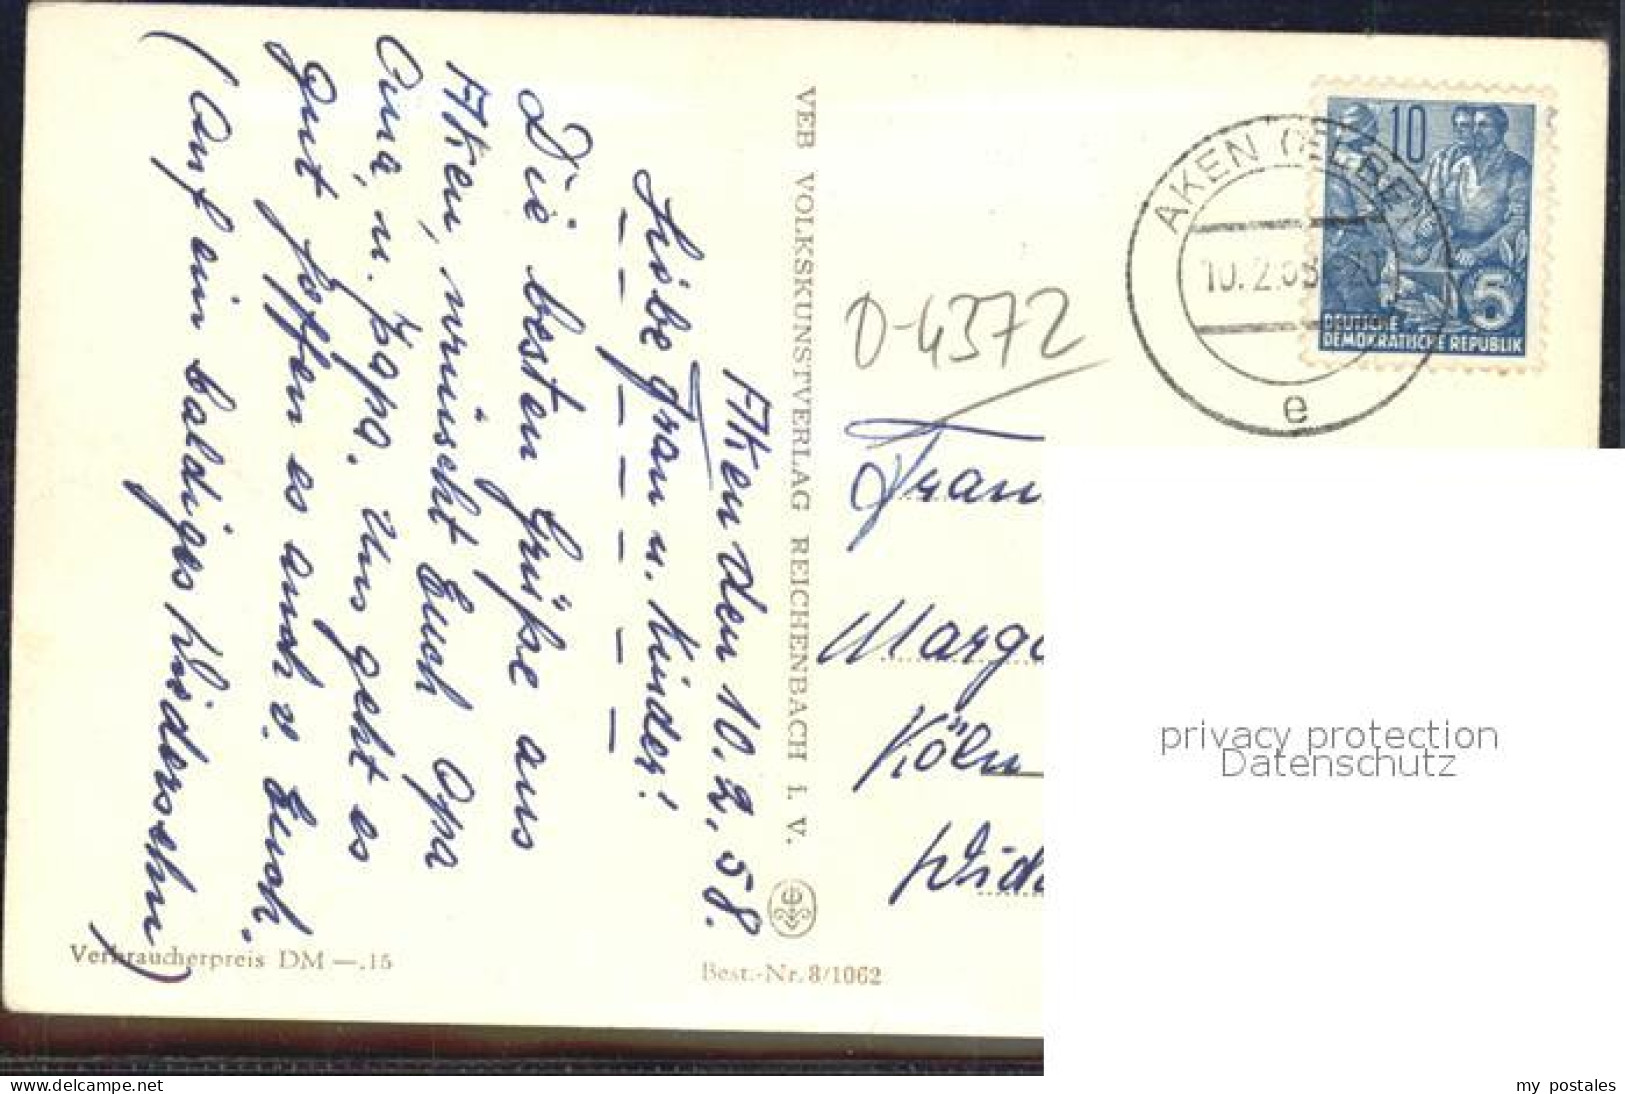 Aken den 10.2.58.
Liebe Frau u. Kinder!
Die besten Grüße aus
Aken, wünscht Euch Opa
Oma, u. Papa. Uns geht es
gut hoffen es auch v. Euch.
(Auf ein baldiges Widersehn)
Verbraucherpreis DM —.15
VEB VOLKSKUNSTVERLAG REICHENBACH I. V.
Best.-Nr. 8/1062
AKEN (ELBE)
10.2.58
e
10
5
DEUTSCHE
DEMOKRATISCHE REPUBLIK
D-4372
Frau
Marg
Köln
privacy protection
Datenschutz
www.delcampe.net
my_postales